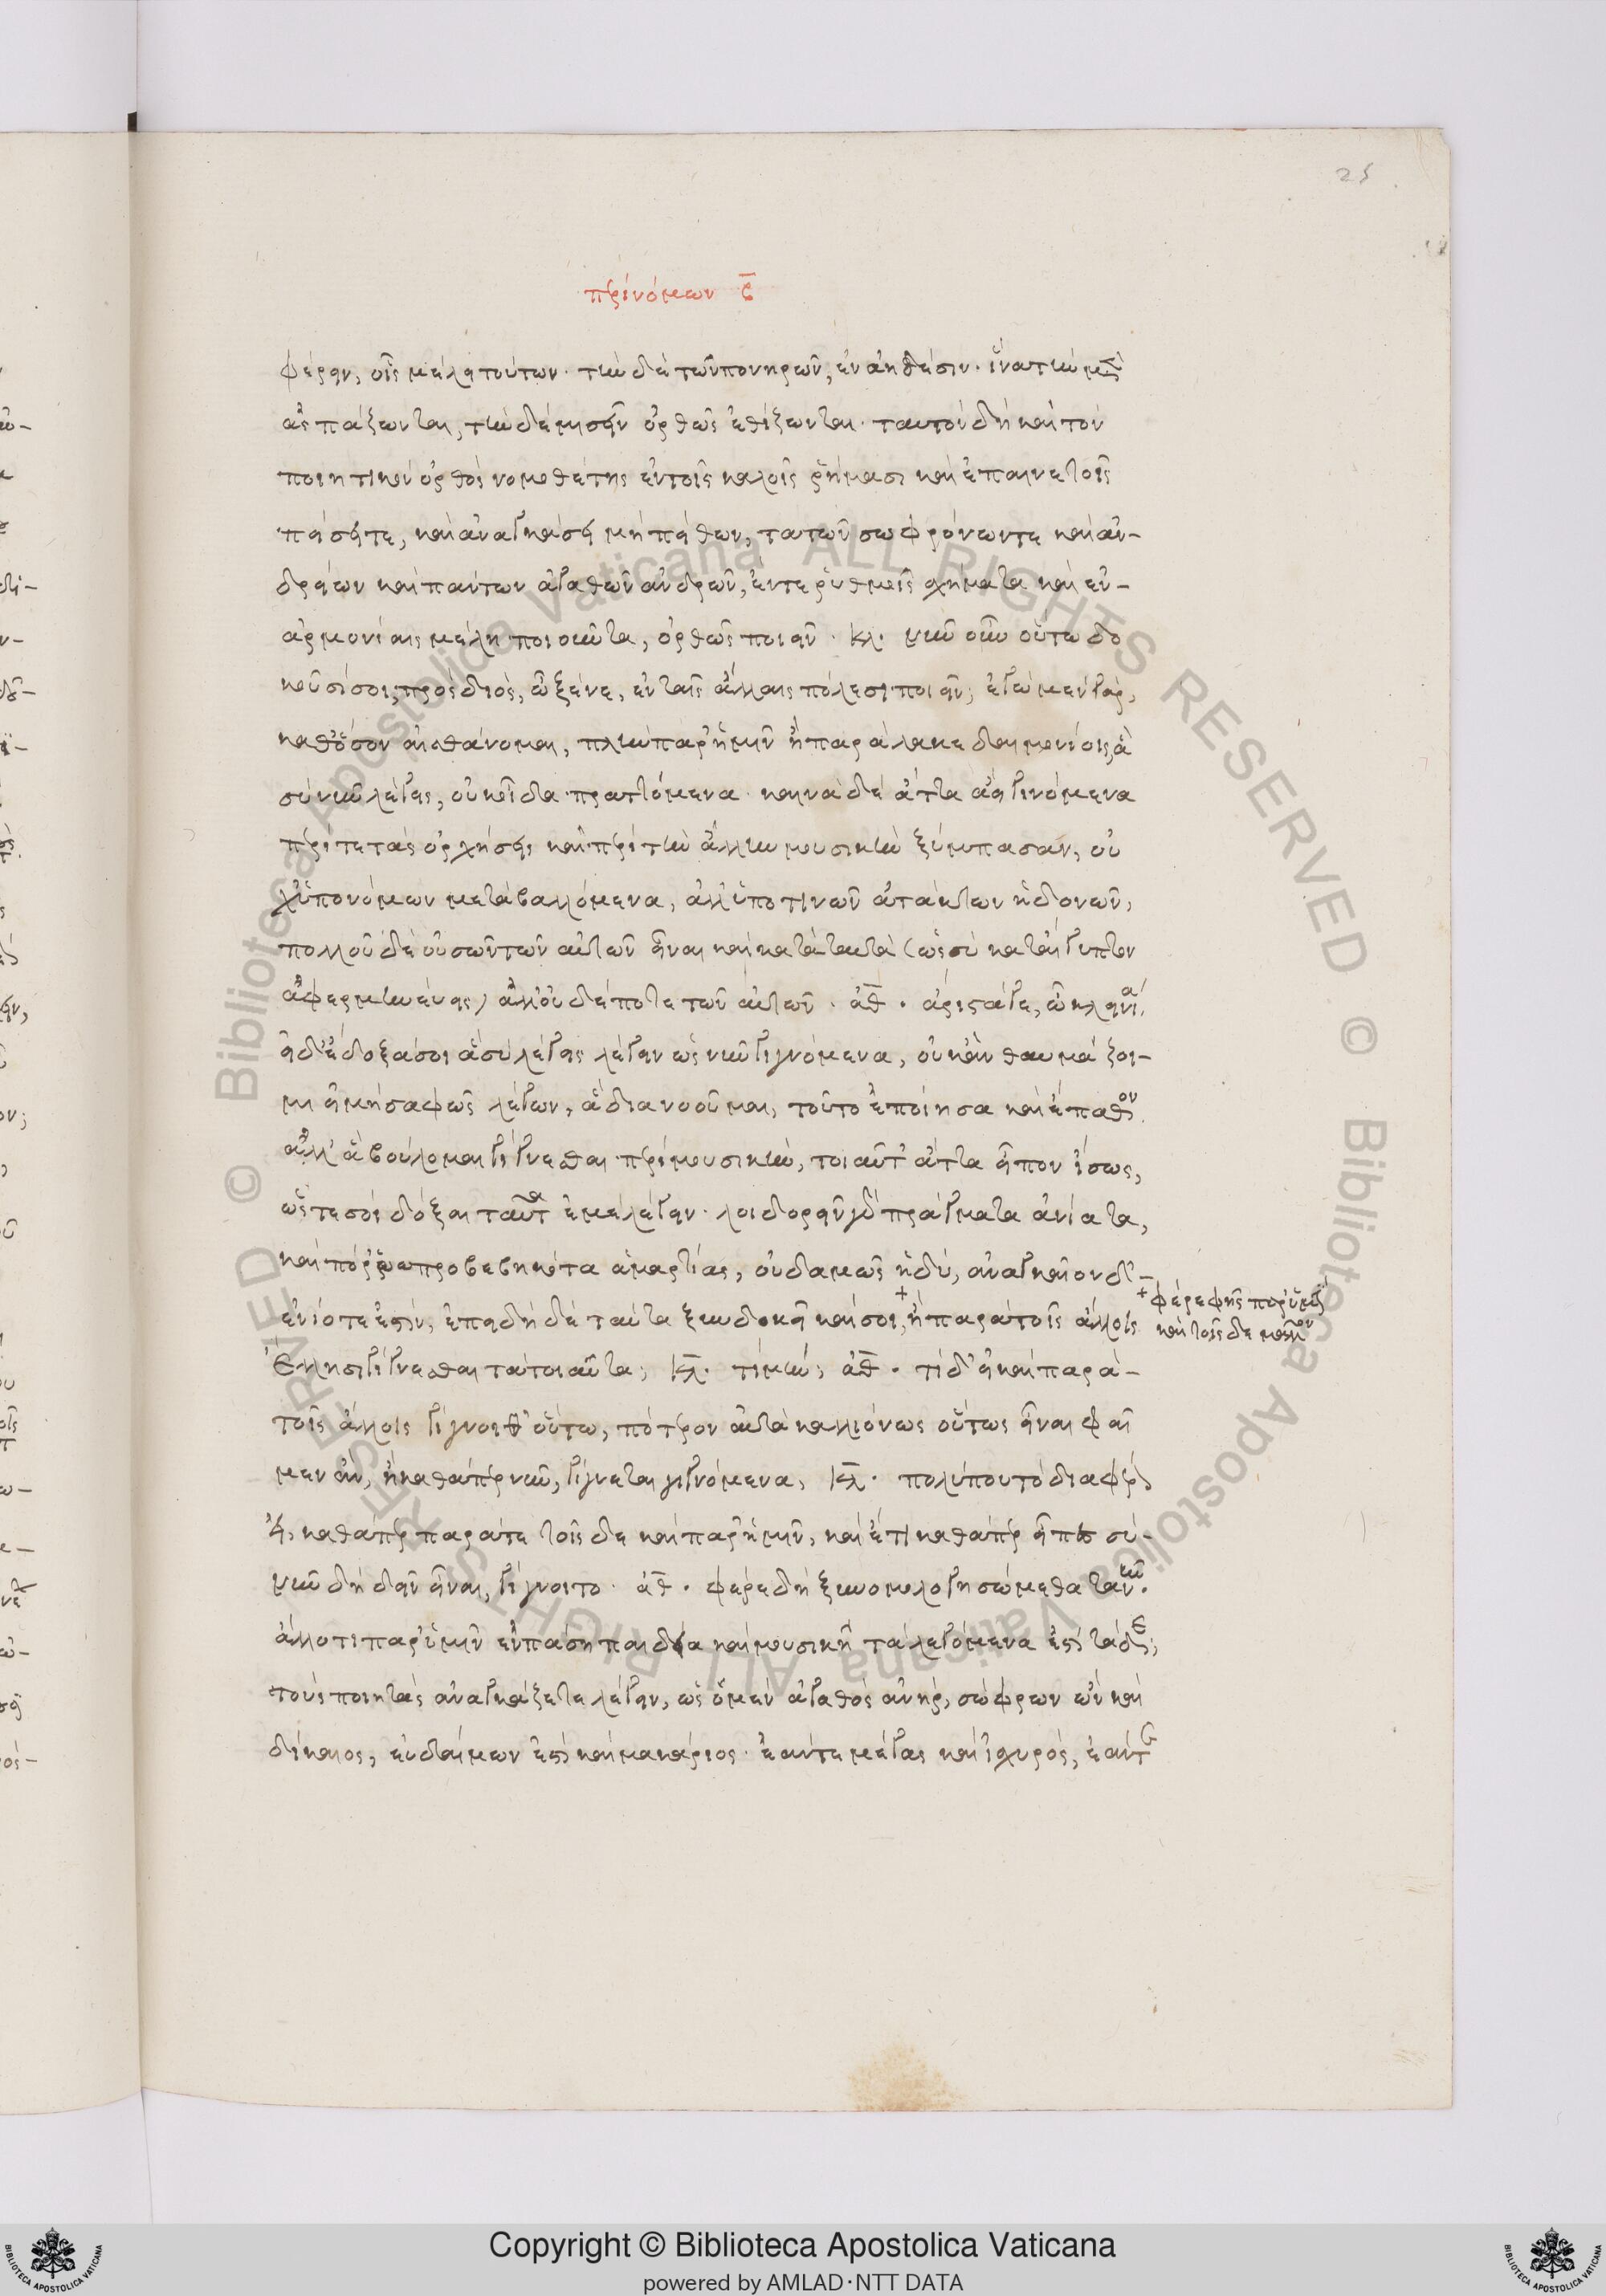 25
περὶ νόμων β
φέρειν, οἷς μέλει τούτων· τὴν δὲ τῶν πονηρῶν, ἐν ἀηδέσιν· ἵνα τὴν μὲν
ἀσπάζωνται, τὴν δὲ μισεῖν ὀρθῶς ἐθίζωνται· ταυτὸν δὴ καὶ τὸν
ποιητικὸν ὀρθὸς νομοθέτης ἐν τοῖς καλοῖς ῥήμασι καὶ ἐπαινετοῖς
πείσει τε, καὶ ἀναγκάσει μὴ πείθων, τὰ τῶν σωφρόνων τε καὶ ἀν-
δρείων καὶ πάντων ἀγαθῶν ἀνδρῶν, ἔν τε ῥυθμοῖς σχήματα καὶ ἐν
ἁρμονίαις μέλη ποιοῦντα, ὀρθῶς ποιεῖν· κλ. νῦν οὖν οὕτω δο
κοῦσί σοι, πρὸς διὸς, ὦ ξένε, ἐν ταῖς ἄλλαις πόλεσι ποιεῖν; ἐγὼ μὲν γὰρ,
καθ' ὅσον αἰσθάνομαι, πλὴν παρ' ἡμῖν ἢ παρὰ λακεδαιμονίοις, ἃ
σὺ νῦν λέγεις, οὐκ οἶδα πραττόμενα· καινὰ δέ ἄττα ἀεὶ γινόμενα
περί τε τὰς ὀρχήσεις καὶ περὶ τὴν ἄλλην μουσικὴν ξύμπασαν, οὐ
χ' ὑπὸ νόμων μεταβαλλόμενα, ἀλλ' ὑπό τινων ἀτάκτων ἡδονῶν,
πολλοῦ δὲ οὐσῶν τῶν αὐτῶν εἶναι καὶ κατὰ ταυτὰ (ὡς σὺ κατ' αἴγυπτον
ἀφερμηνεύεις) ἀλλ' οὐδέποτε τῶν αὐτῶν· ἀθ. ἄριστά γε, ὦ κλεινία.
εἰ δ' ἔδοξά σοι ἃ σὺ λέγεις λέγειν ὡς νῦν γιγνόμενα, οὐκ ἂν θαυμάζοι-
μι εἰ μὴ σαφῶς λέγων, ἃ διανοοῦμαι, τοῦτο ἐποίησα καὶ ἔπαθον.
ἀλλ' ἃ βούλομαι γίγνεσθαι περὶ μουσικὴν, τοιαῦτ' ἄττα εἶπον ἴσως,
ὥς τε σοὶ δόξαι ταῦτα ἐμὲ λέγειν· λοιδορεῖν γὰρ πράγματα ἀνίατα,
καὶ πόρρω προβεβηκότα ἁμαρτίας, οὐδαμῶς ἡδύ, ἀναγκαῖον δ'
ἐνίοτε ἐστίν, ἐπειδὴ δὲ ταῦτα ξυνδοκεῖ καὶ σοί, + ἢ παρὰ τοῖς ἄλλοις
+ φέρε φῂς παρ' ὑμῖν
καὶ τοῖς δε μᾶλλον
Ἕλλησι γίγνεσθαι τὰ τοιαῦτα; κλ. τί μήν; ἀθ. τί δ' εἰ καὶ παρὰ
τοῖς ἄλλοις γίγνοιθ' οὕτω, πότερον αὐτὰ καλλιόνως οὕτως εἶναι φαῖ
μεν ἂν, ἢ καθάπερ νῦν, γίγνεται γιγνόμενα; κλ. πολύ που τὸ διαφέρον
εἰ, καθάπερ παρά τε τοῖς δε καὶ παρ' ἡμῖν, καὶ ἔτι καθάπερ εἶπες σὺ
νῦν δὴ δεῖν εἶναι, γίγνοιτο· ἀθ. φέρε δὴ ξυνομολογησώμεθα τανῦν.
ἄλλο τι παρ' ὑμῖν ἐν πάσῃ παιδείᾳ καὶ μουσικῇ τὰ λεγόμενα ἐστὶ τάδε;
τοὺς ποιητὰς ἀναγκάζετε λέγειν, ὡς ὁ μὲν ἀγαθὸς ἀνὴρ, σώφρων ὢν καὶ
δίκαιος, εὐδαίμων ἐστὶ καὶ μακάριος· ἐάν τε μέγας καὶ ἰσχυρὸς, ἐάν τε
Copyright © Biblioteca Apostolica Vaticana
powered by AMLAD·NTT DATA